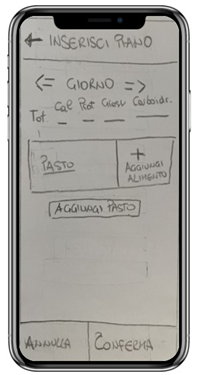 ← INSERISCI PIANO
<= GIORNO =>
Cal Prot Grassi Carboidr.
Tot _ _ _ _
PASTO
+
AGGIUNGI
ALIMENTO
AGGIUNGI PASTO
ANNULLA CONFERMA